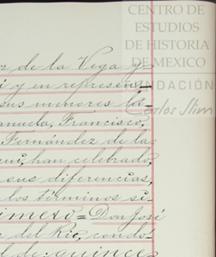 CENTRO DE
ESTUDIOS
DE HISTORIA
DE MEXICO
FUNDACIÓN
Carlos Slim
de la Vega
y en represen-
sus menores
Francisco,
Fernández de la
han celebrado
sus diferencias,
los términos si-
imero = Don José
del Rio,
de quince